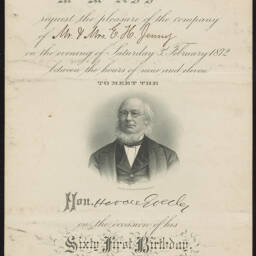 request the pleasure of the company
of Mr. & Mrs. E. H. Jenny
on the evening of Saturday 3 February 1872
between the hours of nine and eleven
TO MEET THE
Hon. Horace Greeley
on the occasion of his
Sixty First Birthday.